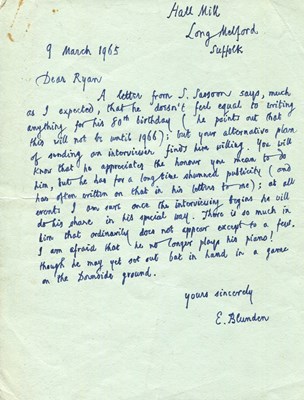 Hall Mill
Long Melford
Suffolk
9 March 1965
Dear Ryan
A letter from S. Sassoon says, much
as I expected, that he doesn't feel equal to writing
anything for his 80th birthday (he points out that
this will not be until 1966); but your alternative plan
of sending an interviewer finds him willing. You will
know that he appreciates the honour you mean to do
him, but he has for a long time shunned publicity (and
has often written on that in his letters to me); at all
events I am sure once the interviewing begins he will
do his share in his special way. There is so much in
him that ordinarily does not appear except to a few.
I am afraid that he no longer plays his piano!
though he may yet set out bat in hand in a game
on the Downside ground.
yours sincerely
E. Blunden